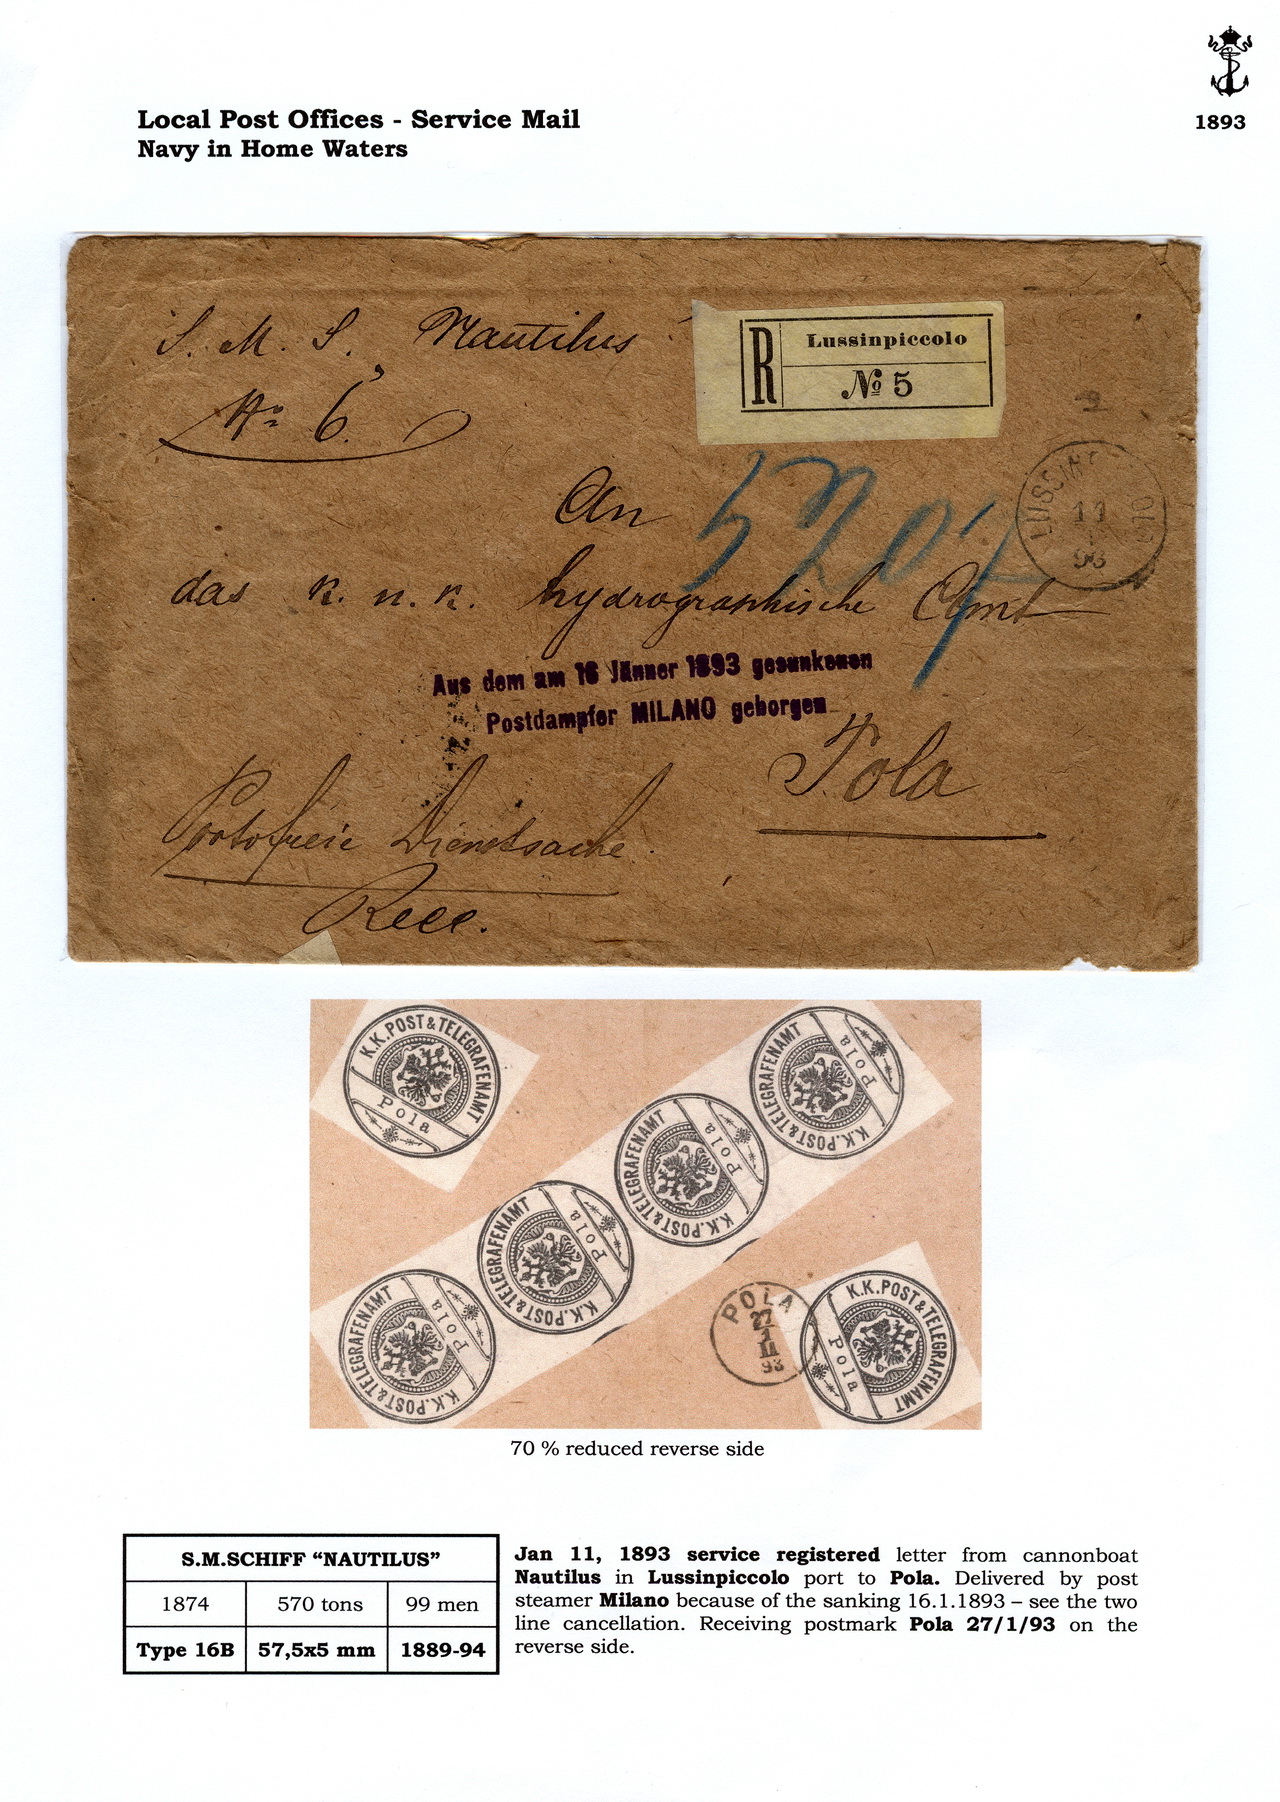 1893
Local Post Offices - Service Mail
Navy in Home Waters
S. M. S. Nautilus
No 6.
R
Lussinpiccolo
No 5
11
93
5207
An
das k. u. k. hydrographische Amt
Aus dem am 16 Jänner 1893 gesunkenen
Postdampfer MILANO geborgen
Pola
Portofreie Dienstsache.
Rece.
K.K.POST&TELEGRAFENAMT
Pola
K.K.POST&TELEGRAFENAMT
Pola
K.K.POST&TELEGRAFENAMT
Pola
K.K.POST&TELEGRAFENAMT
Pola
K.K.POST&TELEGRAFENAMT
Pola
POLA
27
1
II
93
K.K.POST&TELEGRAFENAMT
Pola
70 % reduced reverse side
S.M.SCHIFF “NAUTILUS”
1874 570 tons 99 men
Type 16B 57,5x5 mm 1889-94
Jan 11, 1893 service registered letter from cannonboat
Nautilus in Lussinpiccolo port to Pola. Delivered by post
steamer Milano because of the sanking 16.1.1893 – see the two
line cancellation. Receiving postmark Pola 27/1/93 on the
reverse side.